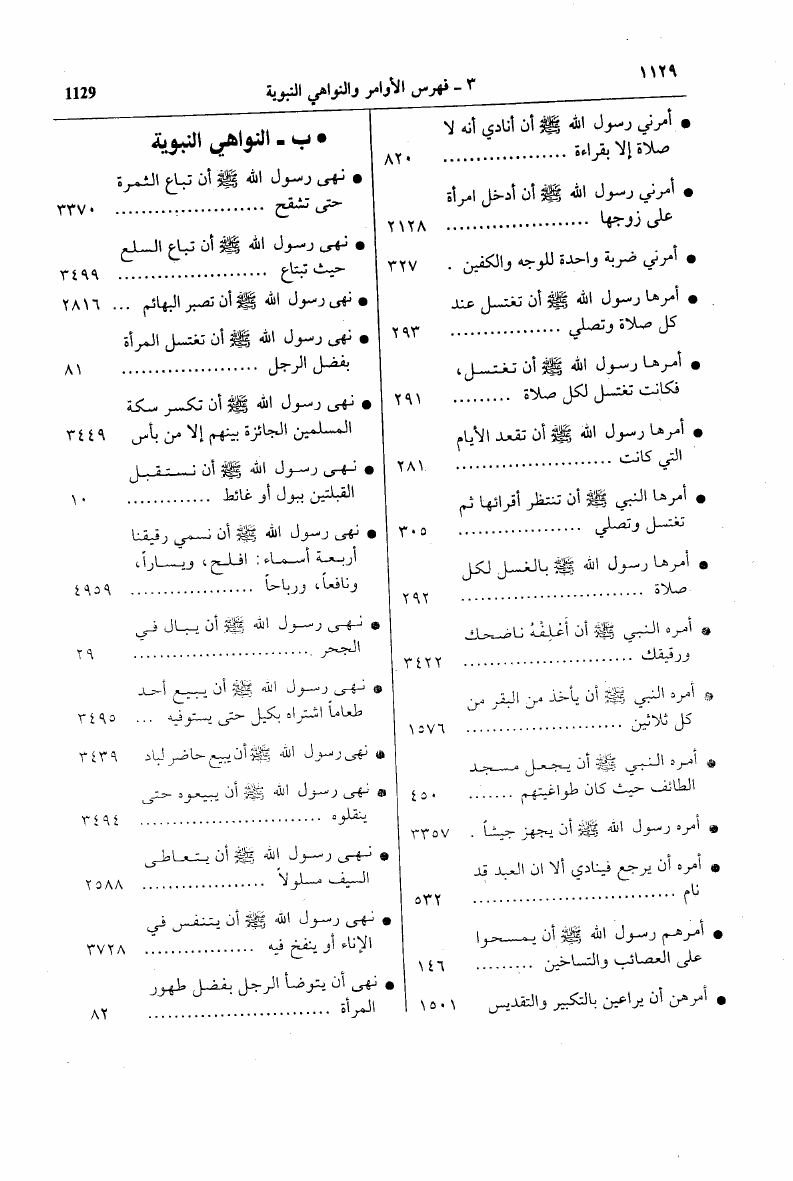 ١١٢٩
٣ - فهرس الأوامر والنواهي النبوية
1129
• أمرني رسول الله ﷺ أن أنادي أنه لا
صلاة إلا بقراءة .................. ٨٢٠
• أمرني رسول الله ﷺ أن أدخل امرأة
على زوجها ..................... ٢١٢٨
• أمرني ضربة واحدة للوجه والكفين . ٣٢٧
• أمرها رسول الله ﷺ أن تغتسل عند
كل صلاة وتصلي ................ ٢٩٣
• أمرها رسول الله ﷺ أن تغتسل،
فكانت تغتسل لكل صلاة ......... ٢٩١
• أمرها رسول الله ﷺ أن تقعد الأيام
التي كانت ....................... ٢٨١
• أمرها النبي ﷺ أن تنتظر أقرائها ثم
تغتسل وتصلي .................. ٣٠٥
• أمرها رسول الله ﷺ بالغسل لكل
صلاة ........................... ٢٩٢
• أمره النبي ﷺ أن أَعْلِفْهُ ناضحك
ورقيقك ......................... ٣٤٢٢
• أمره النبي ﷺ أن يأخذ من البقر من
كل ثلاثين ....................... ١٥٧٦
• أمره النبي ﷺ أن يجعل مسجد
الطائف حيث كان طواغيتهم ....... ٤٥٠
• أمره رسول الله ﷺ أن يجهز جيشاً . ٣٣٥٧
• أمره أن يرجع فينادي ألا ان العبد قد
نام .............................. ٥٣٢
• أمرهم رسول الله ﷺ أن يمسحوا
على العصائب والتساخين ......... ١٤٦
• أمرهن أن يراعين بالتكبير والتقديس ١٥٠١
• ب - النواهي النبوية
• نهى رسول الله ﷺ أن تباع الثمرة
حتى تشقح ...................... ٣٣٧٠
• نهى رسول الله ﷺ أن تباع السلع
حيث تبتاع ...................... ٣٤٩٩
• نهى رسول الله ﷺ أن تصبر البهائم ... ٢٨١٦
• نهى رسول الله ﷺ أن تغتسل المرأة
بفضل الرجل .................... ٨١
• نهى رسول الله ﷺ أن تكسر سكة
المسلمين الجائزة بينهم إلا من بأس ٣٤٤٩
• نهى رسول الله ﷺ أن نستقبل
القبلتين ببول أو غائط ............ ١٠
• نهى رسول الله ﷺ أن نسمي رقيقنا
أربعة أسماء: افلح، ويساراً،
ونافعاً، ورباحاً .................. ٤٩٥٩
• نهى رسول الله ﷺ أن يبال في
الجحر .......................... ٢٩
• نهى رسول الله ﷺ أن يبيع أحد
طعاماً اشتراه بكيل حتى يستوفيه ... ٣٤٩٥
• نهى رسول الله ﷺ أن يبيع حاضر لباد ٣٤٣٩
• نهى رسول الله ﷺ أن يبيعوه حتى
ينقلوه ........................... ٣٤٩٤
• نهى رسول الله ﷺ أن يتعاطى
السيف مسلولاً .................. ٢٥٨٨
• نهى رسول الله ﷺ أن يتنفس في
الإناء أو ينفخ فيه ................ ٣٧٢٨
• نهى أن يتوضأ الرجل بفضل طهور
المرأة ........................... ٨٢